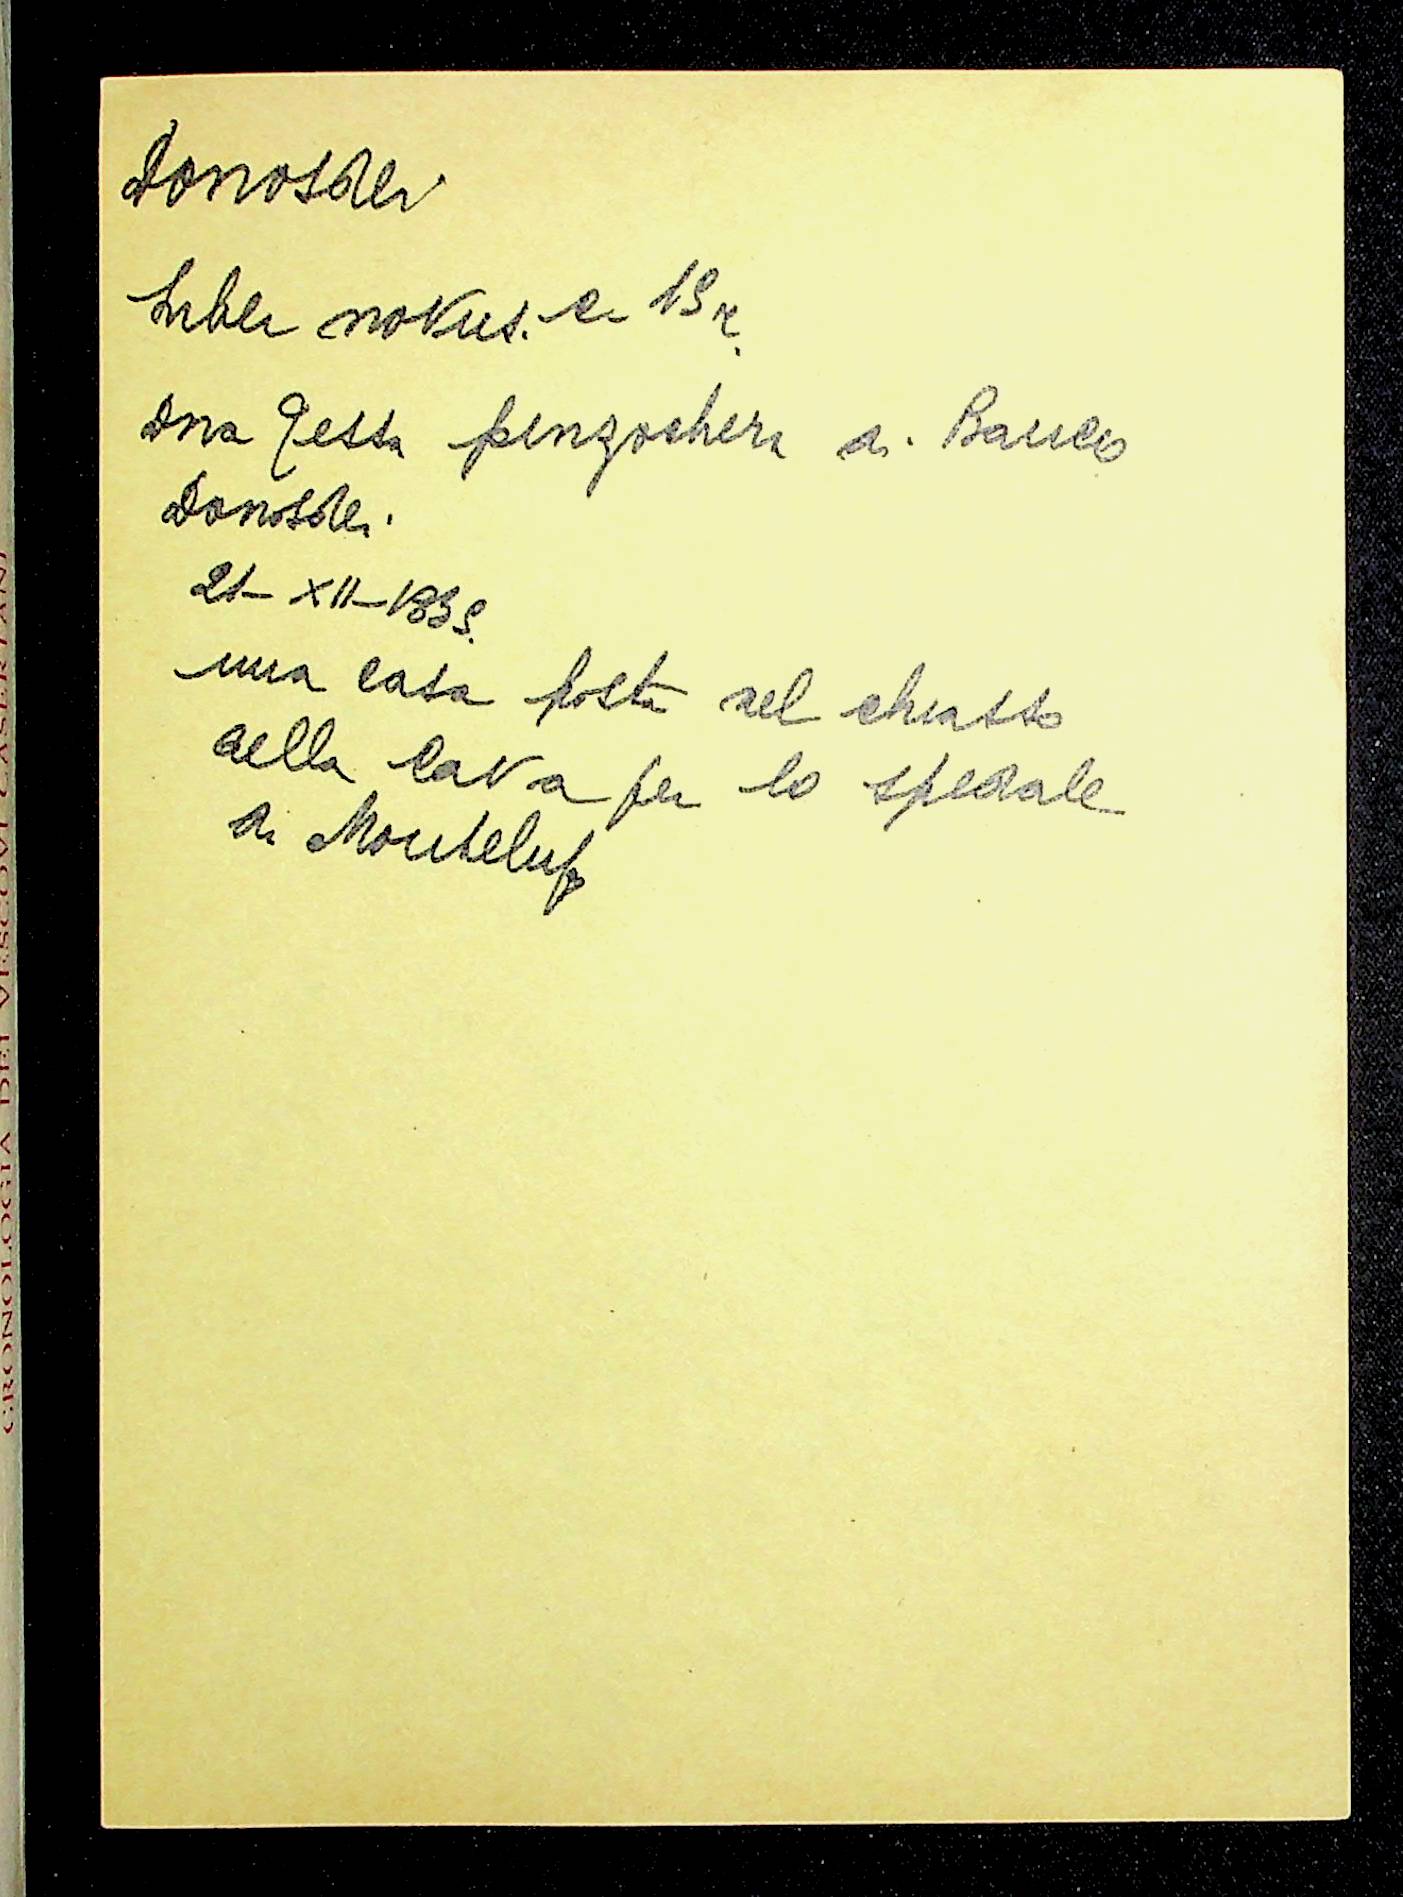 Donosdei
Liber novus. c. 19 r.
Dna Tessa pinzochera di Banco
Donosdei.
21-XII-1339.
una casa posta nel chiasso
della Cava per lo spedale
di Montelupo
CRONOLOGIA DEI VESCOVI CASERTANI